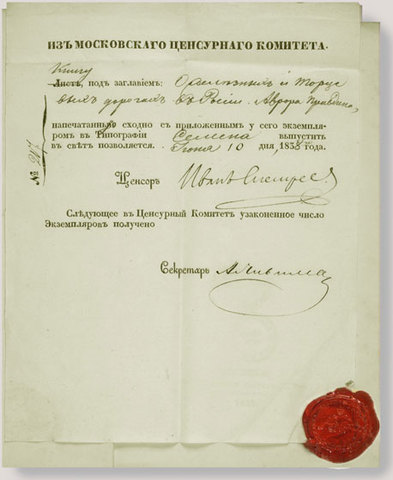 ИЗЪ МОСКОВСКАГО ЦЕНСУРНАГО КОМИТЕТА.
Книгу
Листъ, подъ заглавіемъ: О желѣзныхъ и торцо
выхъ дорогахъ въ Росіи. Аврора
напечатанную сходно съ приложеннымъ у сего экземпля-
ромъ въ Типографіи Семена выпустить
въ свѣтъ позволяется. Іюня 10 дня, 1838 года.
№ 217
Ценсоръ Иванъ Снегирев.
Слѣдующее въ Ценсурный Комитетъ узаконенное число
Экземпляровъ получено
Секретарь